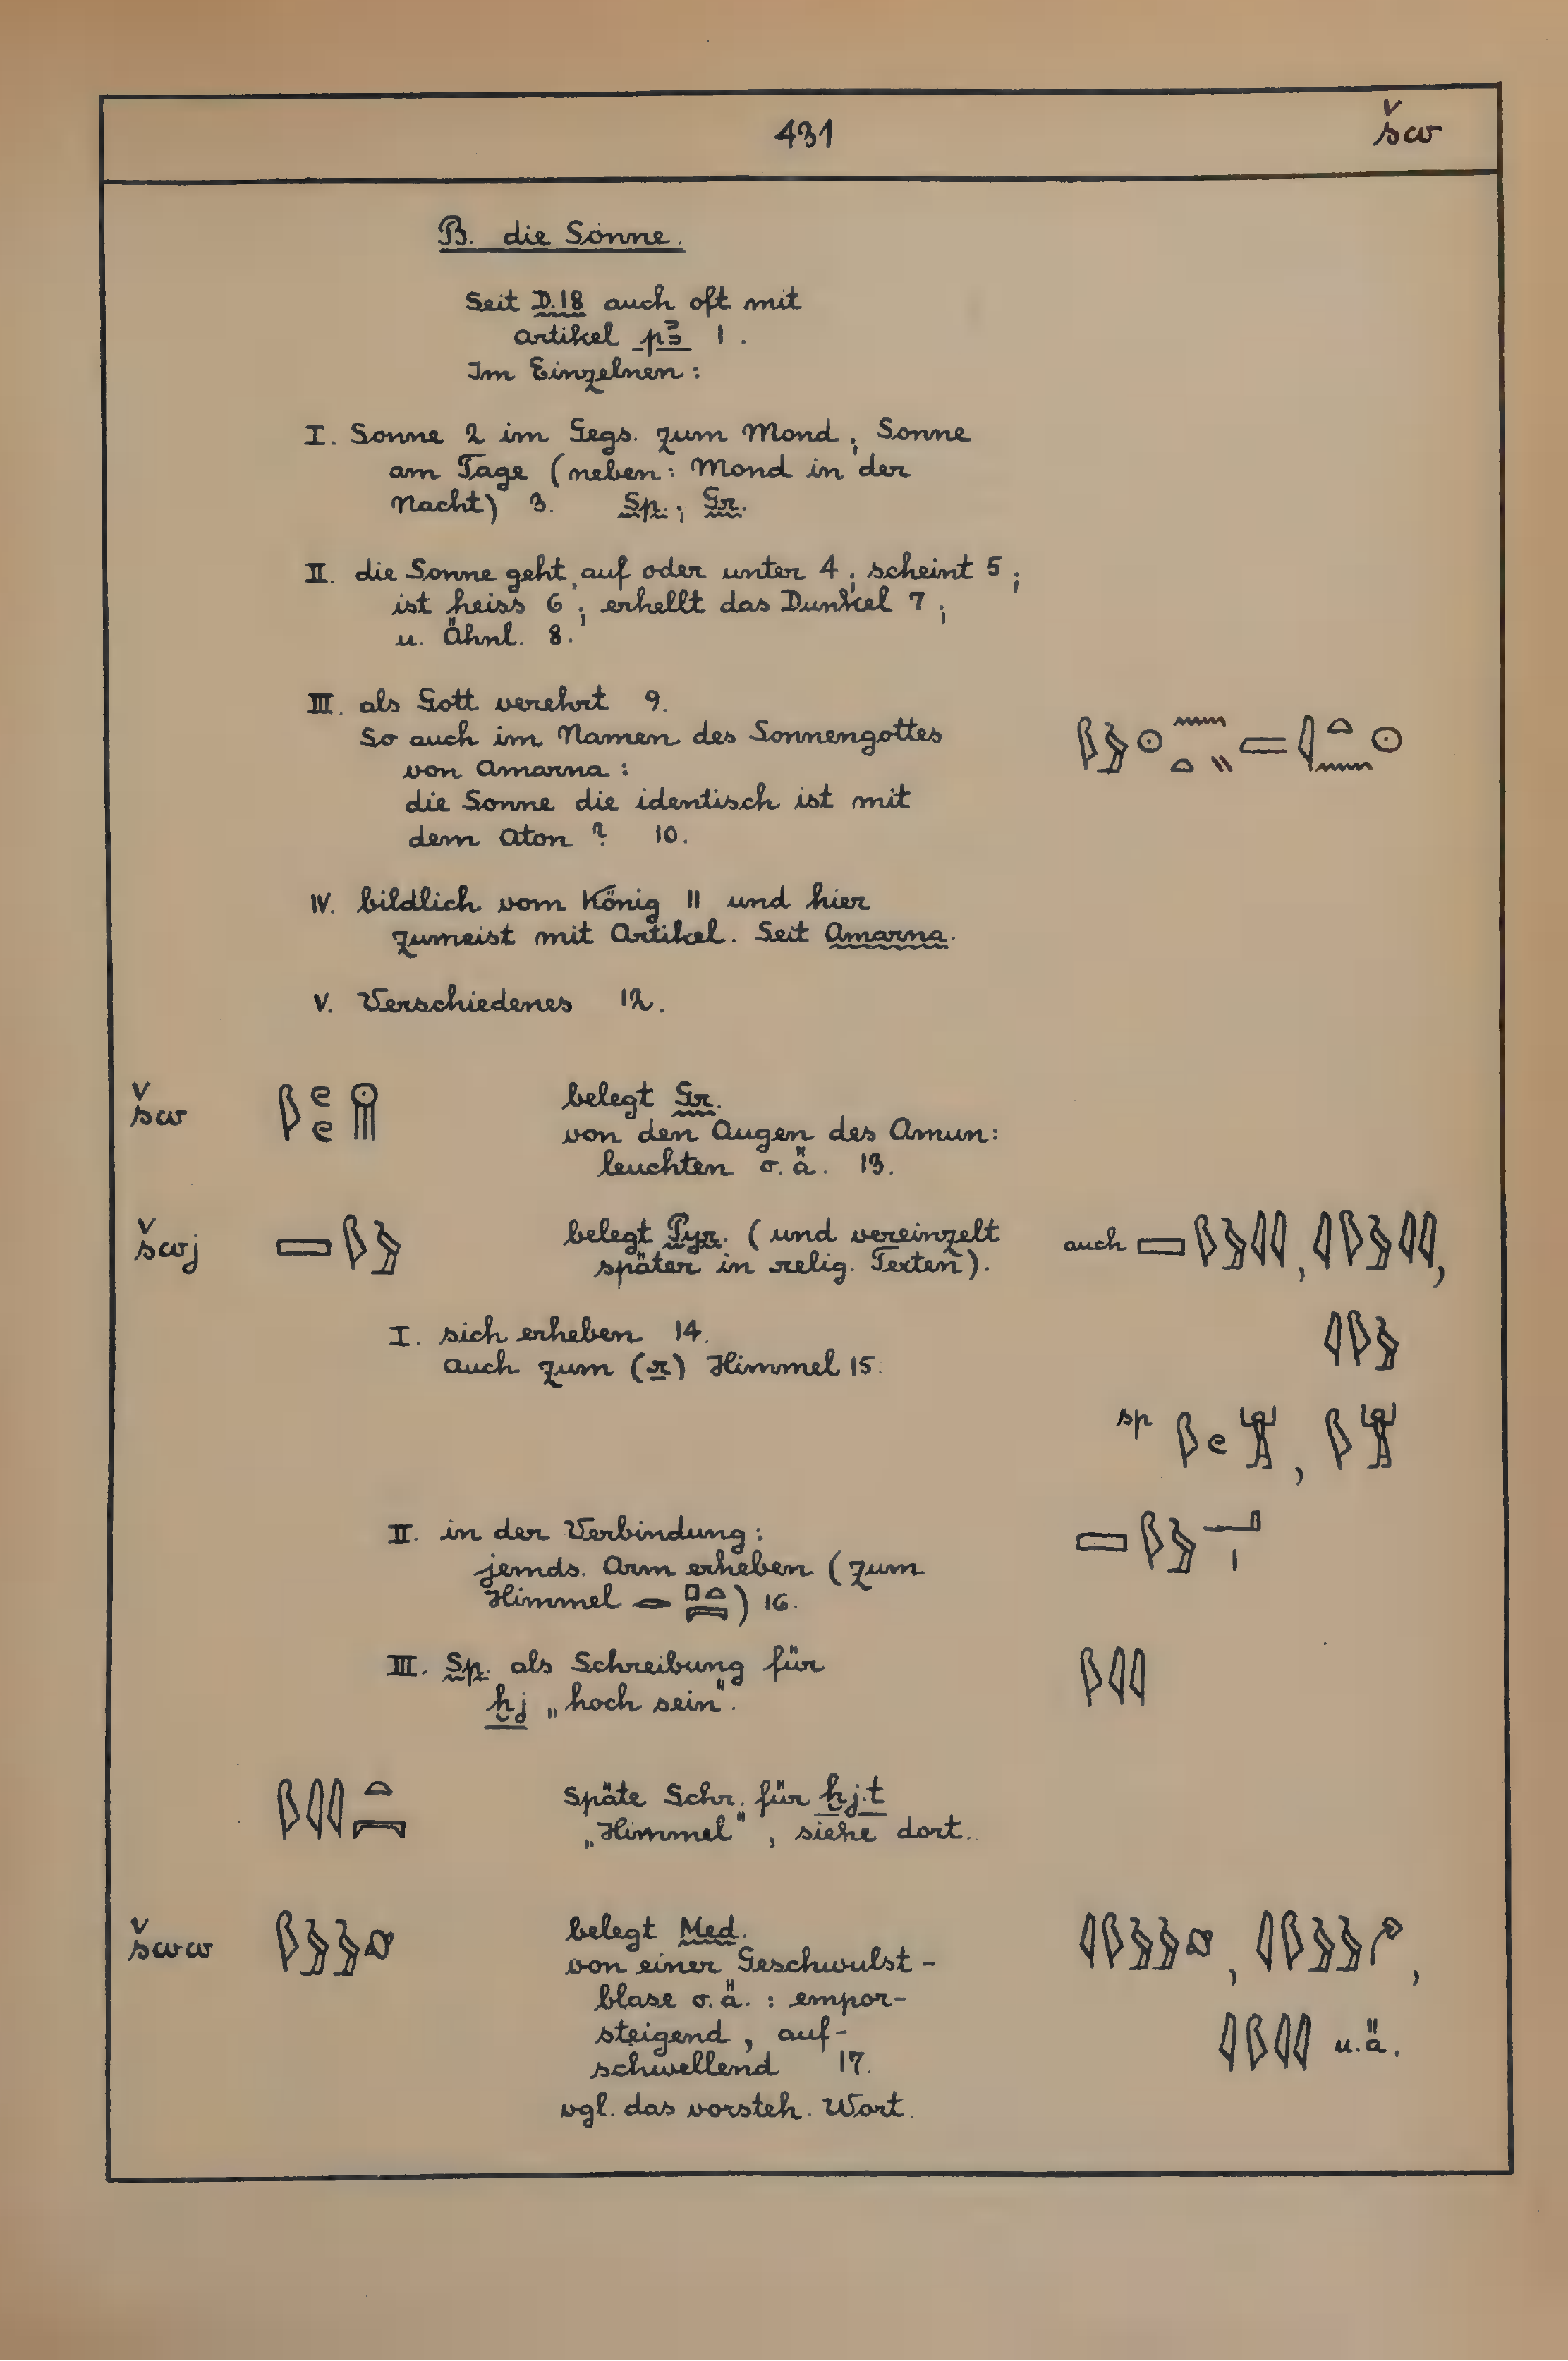 431 šw
B. die Sonne.
Seit D.18 auch oft mit
Artikel pꜣ 1.
Im Einzelnen:
I. Sonne 2 im Gegs. zum Mond; Sonne
am Tage (neben: Mond in der
Nacht) 3. Sp.; Gr.
II. die Sonne geht auf oder unter 4; scheint 5;
ist heiss 6; erhellt das Dunkel 7;
u. Ähnl. 8.
III. als Gott verehrt 9.
So auch im Namen des Sonnengottes
von Amarna:
die Sonne die identisch ist mit
dem Aton ? 10.
IV. bildlich vom König 11 und hier
zumeist mit Artikel. Seit Amarna.
V. Verschiedenes 12.
šw belegt Gr.
von den Augen des Amun:
leuchten o.ä. 13.
šwj belegt Pyr. (und vereinzelt auch
später in relig. Texten).
I. sich erheben 14.
auch zum (r) Himmel 15.
sp
II. in der Verbindung:
jemds. Arm erheben (zum
Himmel ) 16.
III. Sp. als Schreibung für
ḫj „hoch sein".
Späte Schr. für ḫj.t
„Himmel", siehe dort.
šww belegt Med.
von einer Geschwulst-
blase o.ä.: empor-
steigend, auf- u.ä.
schwellend 17.
vgl. das vorsteh. Wort.